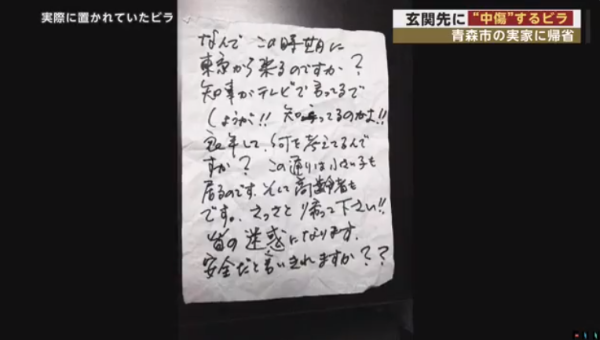 実際に置かれていたビラ
玄関先に“中傷”するビラ
青森市の実家に帰省
なんで この時期に
東京から来るのですか？
知事がテレビで言ってるで
しょうが!! 知ってるのかよ!!
良い年して、何を考えてるんで
すか？ この通りは小さい子も
居るのです。そして高齢者も
です。さっさと帰って下さい!!
皆の迷惑になります。
安全だと言いきれますか？？